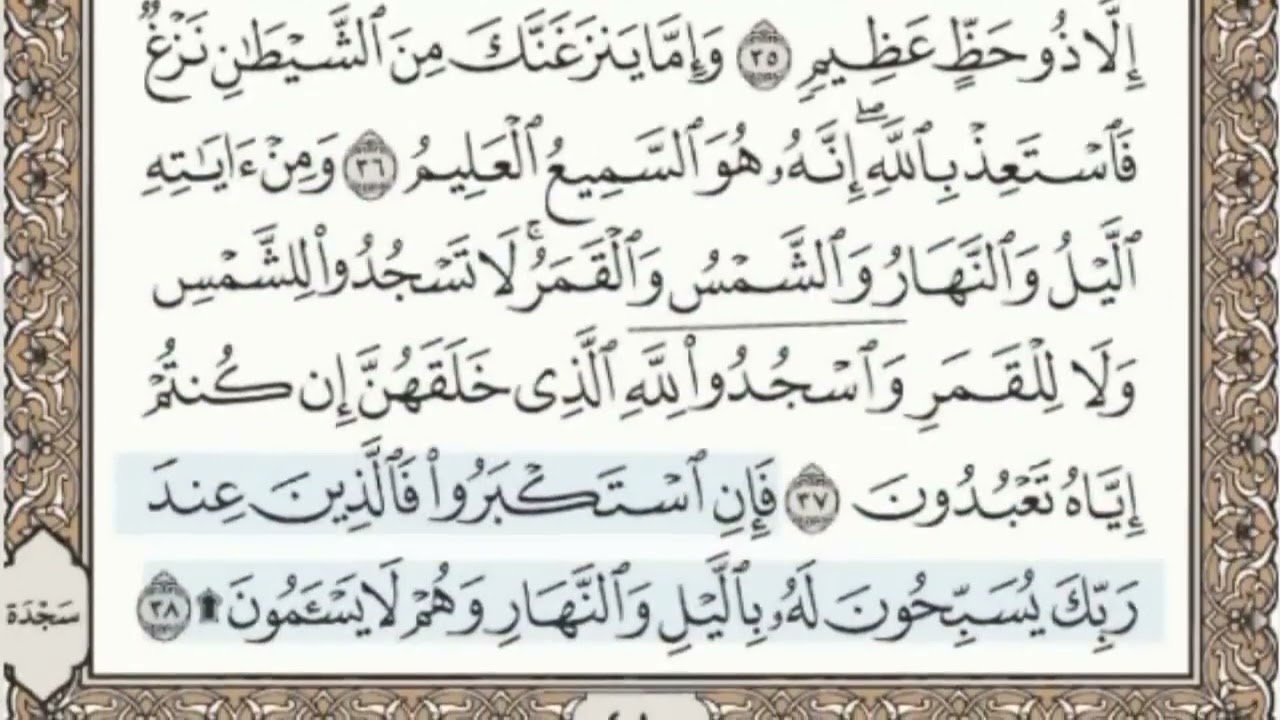 إِلَّا ذُو حَظٍّ عَظِيمٍ ٣٥ وَإِمَّا يَنزَغَنَّكَ مِنَ ٱلشَّيْطَٰنِ نَزْغٌ
فَٱسْتَعِذْ بِٱللَّهِ ۖ إِنَّهُۥ هُوَ ٱلسَّمِيعُ ٱلْعَلِيمُ ٣٦ وَمِنْ ءَايَٰتِهِ
ٱلَّيْلُ وَٱلنَّهَارُ وَٱلشَّمْسُ وَٱلْقَمَرُ ۚ لَا تَسْجُدُوا۟ لِلشَّمْسِ
وَلَا لِلْقَمَرِ وَٱسْجُدُوا۟ لِلَّهِ ٱلَّذِى خَلَقَهُنَّ إِن كُنتُمْ
إِيَّاهُ تَعْبُدُونَ ٣٧ فَإِنِ ٱسْتَكْبَرُوا۟ فَٱلَّذِينَ عِندَ
رَبِّكَ يُسَبِّحُونَ لَهُۥ بِٱلَّيْلِ وَٱلنَّهَارِ وَهُمْ لَا يَسْـَٔمُونَ ۩ ٣٨
سَجْدَة